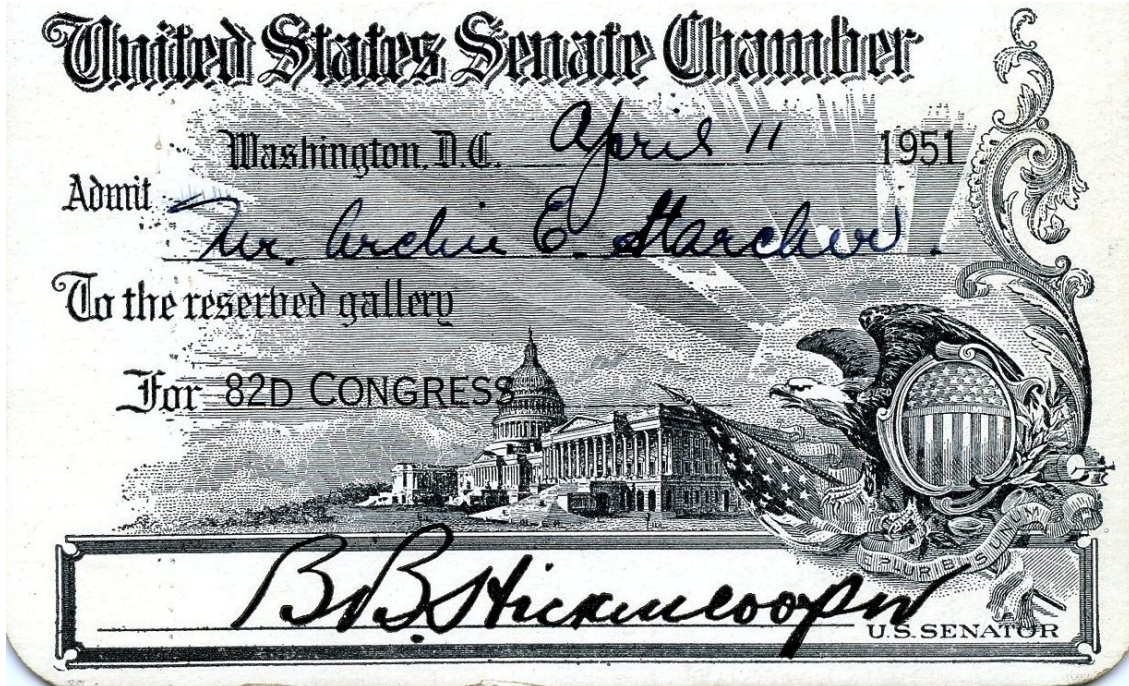 United States Senate Chamber
Washington, D.C. April 11 1951
Admit
Mr. Archie E. Starcher.
To the reserved gallery
For 82D CONGRESS
E PLURIBUS UNUM
B. B. Hickenlooper
U.S. SENATOR